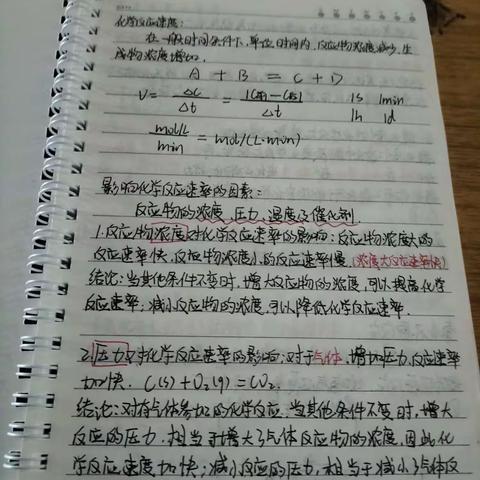 化学反应速度:
在一般时间条件下,单位时间内,反应物浓度减少,生
成物浓度增加.
A + B = C + D
V = Δc/Δt = |C终-C始|/Δt 1s 1min
1h 1d
mol/L/min = mol/(L·min)
影响化学反应速率的因素:
反应物的浓度、压力、温度及催化剂.
1.反应物浓度对化学反应速率的影响:反应物浓度大的
反应速率快,反应物浓度小的反应速率慢.(浓度大反应速率快)
结论:当其他条件不变时,增大反应物的浓度,可以提高化学
反应速率;减小反应物的浓度,可以降低化学反应速率.
2.压力对化学反应速率的影响:对于气体,增加压力,反应速率
加快. C(s) + O₂(g) = CO₂.
结论:对有气体参加的化学反应,当其他条件不变时,增大
反应的压力,相当于增大了气体反应物的浓度,因此化
学反应速度加快;减小反应的压力,相当于减小了气体反